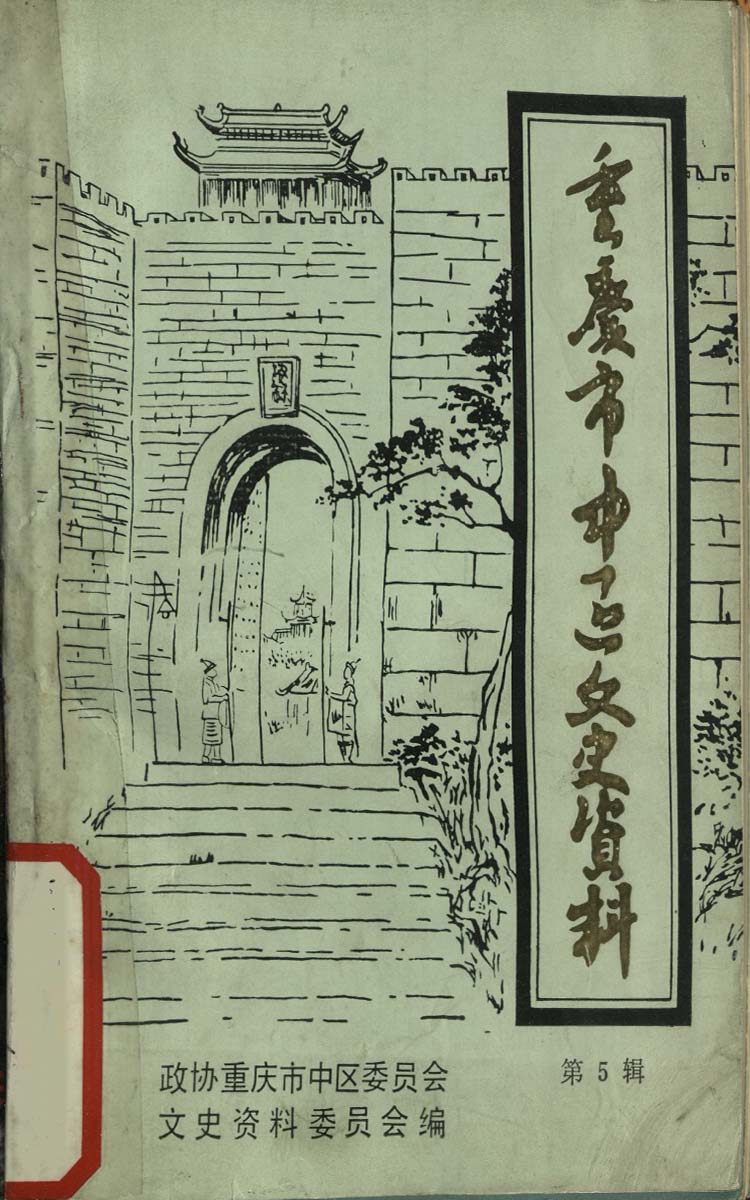 重慶市中区文史資料
第5辑
政协重庆市中区委员会
文史资料委员会编